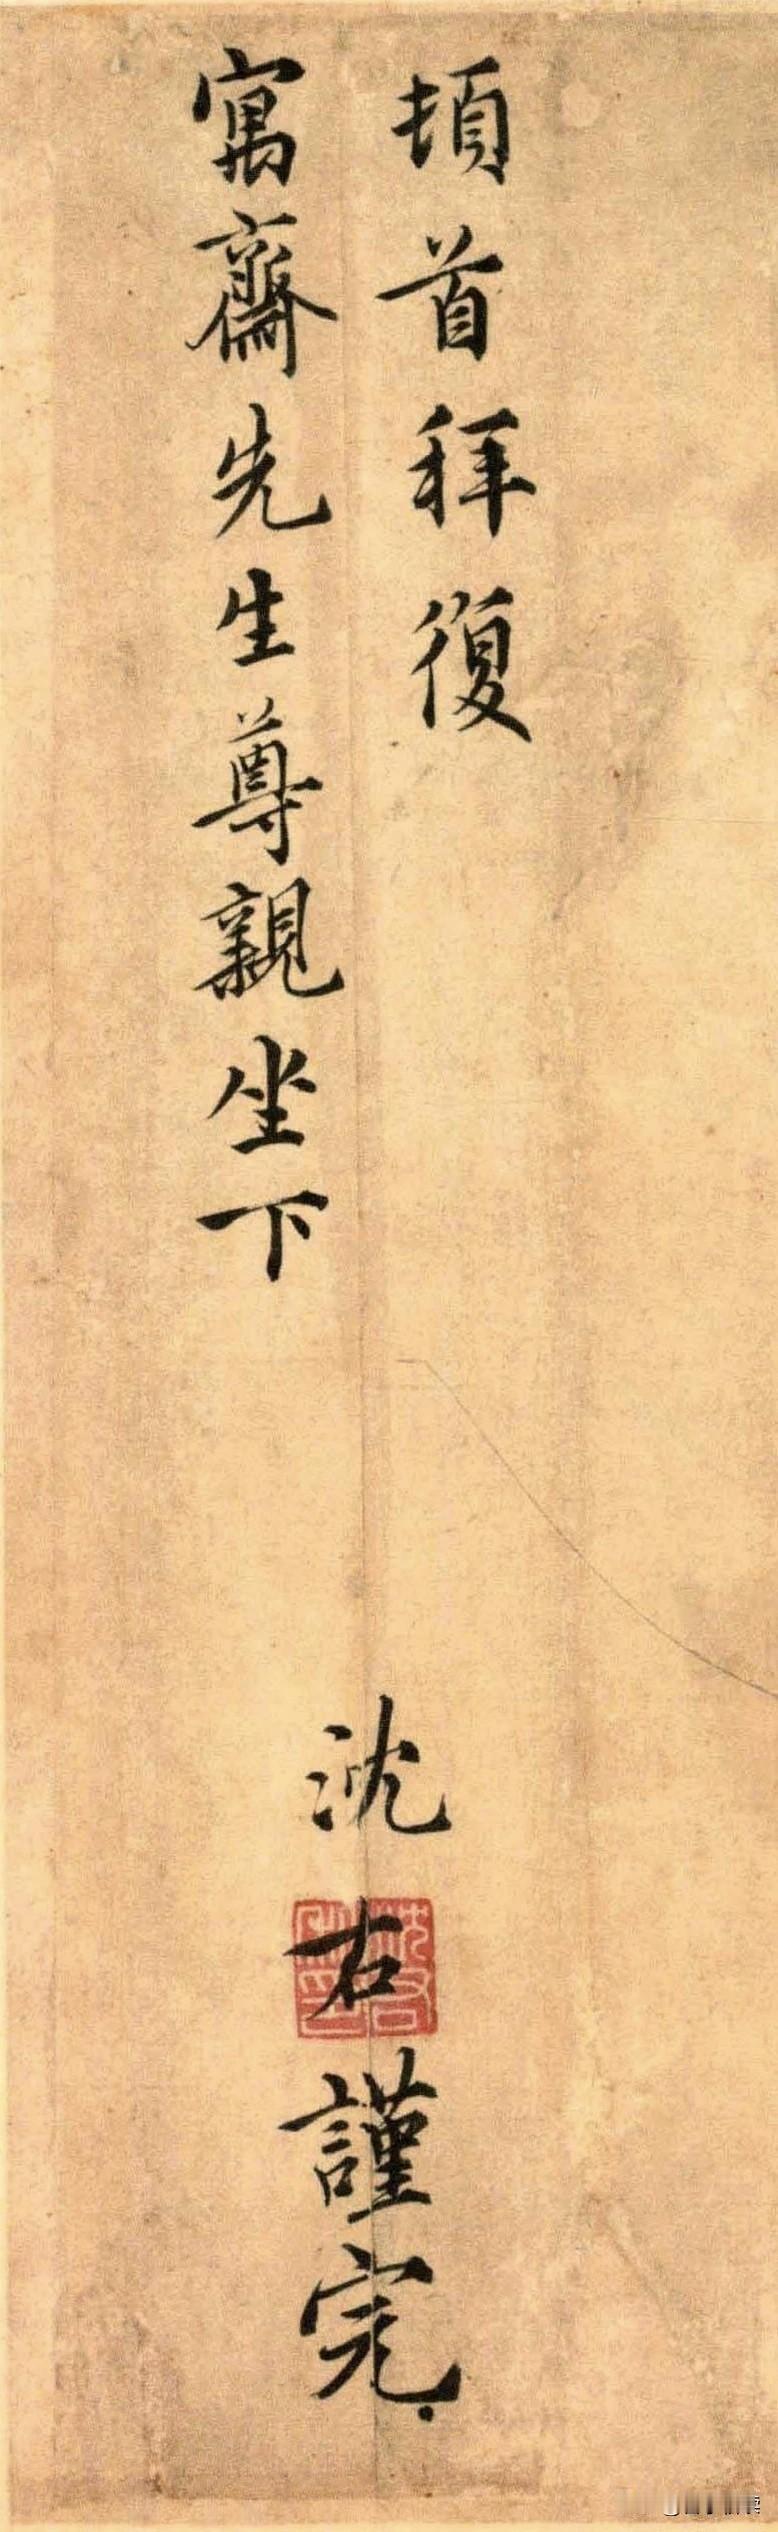 頓首拜復
寓齋先生尊親坐下
沈右謹完